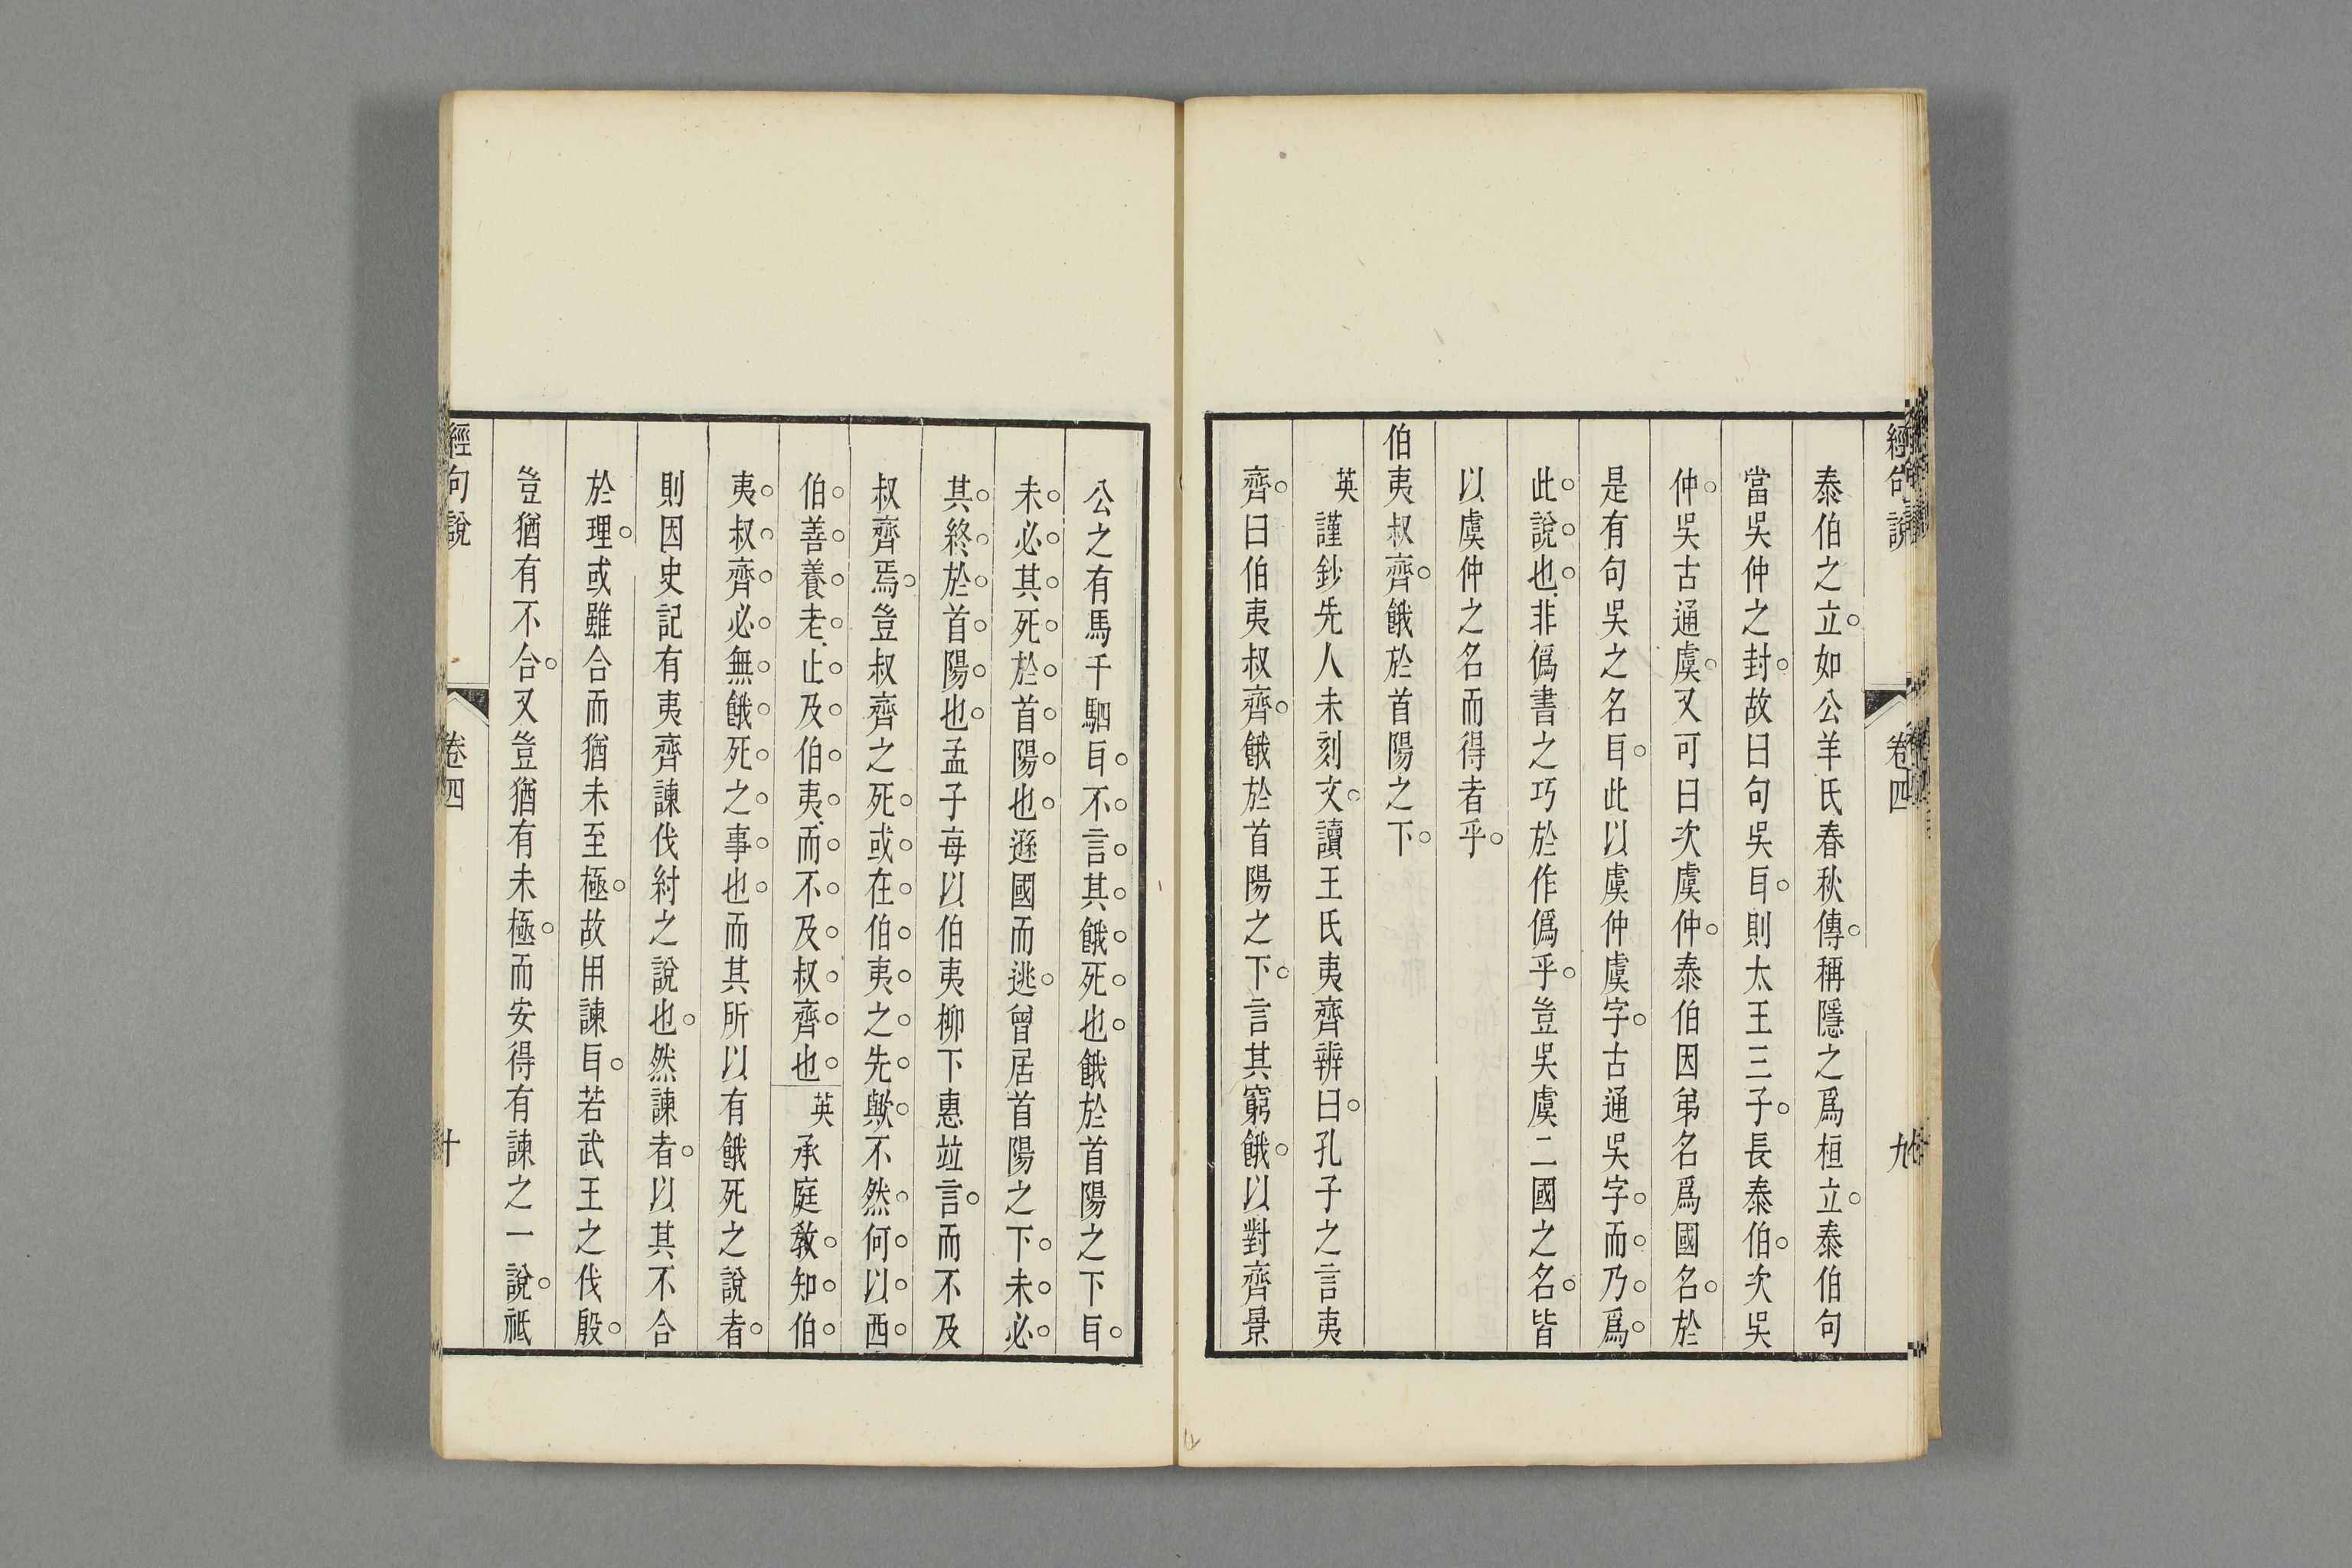 經句說 卷四 九
泰伯之立。如公羊氏春秋傳。稱隱之爲桓立。泰伯句
當吳仲之封。故曰句吳㠯。則太王三子。長泰伯。次吳
仲。吳古通虞。又可曰次虞仲。泰伯因弟名爲國名。於
是有句吳之名㠯。此以虞仲虞字。古通吳字。而。乃。爲。
此。說。也。非僞書之巧於作僞乎。豈吳虞二國之名。皆
以虞仲之名而得者乎。
伯夷叔齊。餓於首陽之下。
英謹鈔先人未刻文。讀王氏夷齊辨曰。孔子之言夷
齊。曰伯夷叔齊。餓於首陽之下。言其窮餓。以對齊景
公之有馬千駟㠯。不。言。其。餓。死。也。餓於首陽之下㠯。
未。必。其。死。於。首。陽。也。遜國而逃。曾居首陽之下。未。必。
其。終。於。首。陽。也。孟子每以伯夷柳下惠竝言。而不及
叔齊焉。豈叔齊之死。或。在。伯。夷。之。先。歟。不然。何。以。西。
伯。善。養。老。止。及。伯。夷。而。不。及。叔。齊。也。英承庭教。知。伯。
夷。叔。齊。必。無。餓。死。之。事。也。而其所以有餓死之說者。
則因史記有夷齊諫伐紂之說也。然諫者。以其不合
於理。或雖合而猶未至極。故用諫㠯。若武王之伐殷。
豈猶有不合。又豈猶有未極。而安得有諫之一說。祗
經句說 卷四 十